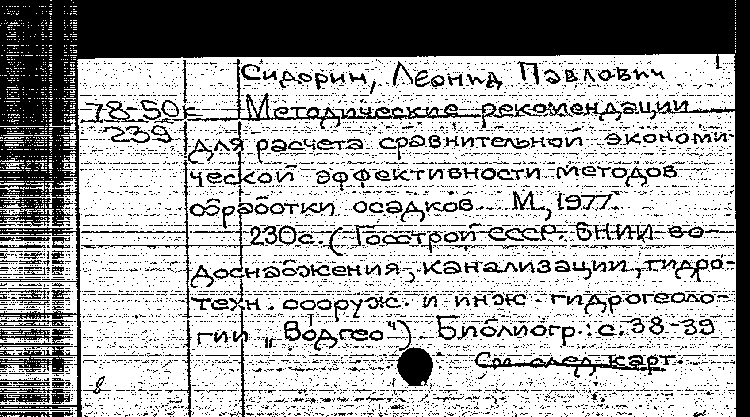 1
Сидорин, Леонид Павлович
78-50 Методические рекомендации
239
для расчета сравнительной экономи-
ческой эффективности методов
обработки осадков. М., 1977.
230с. (Госстрой СССР. ВНИИ во-
доснабжения, канализации, гидро-
техн. сооруж. и инж. гидрогеоло-
гии „Водгео"). Библиогр.: с. 38-39
См. след. карт.